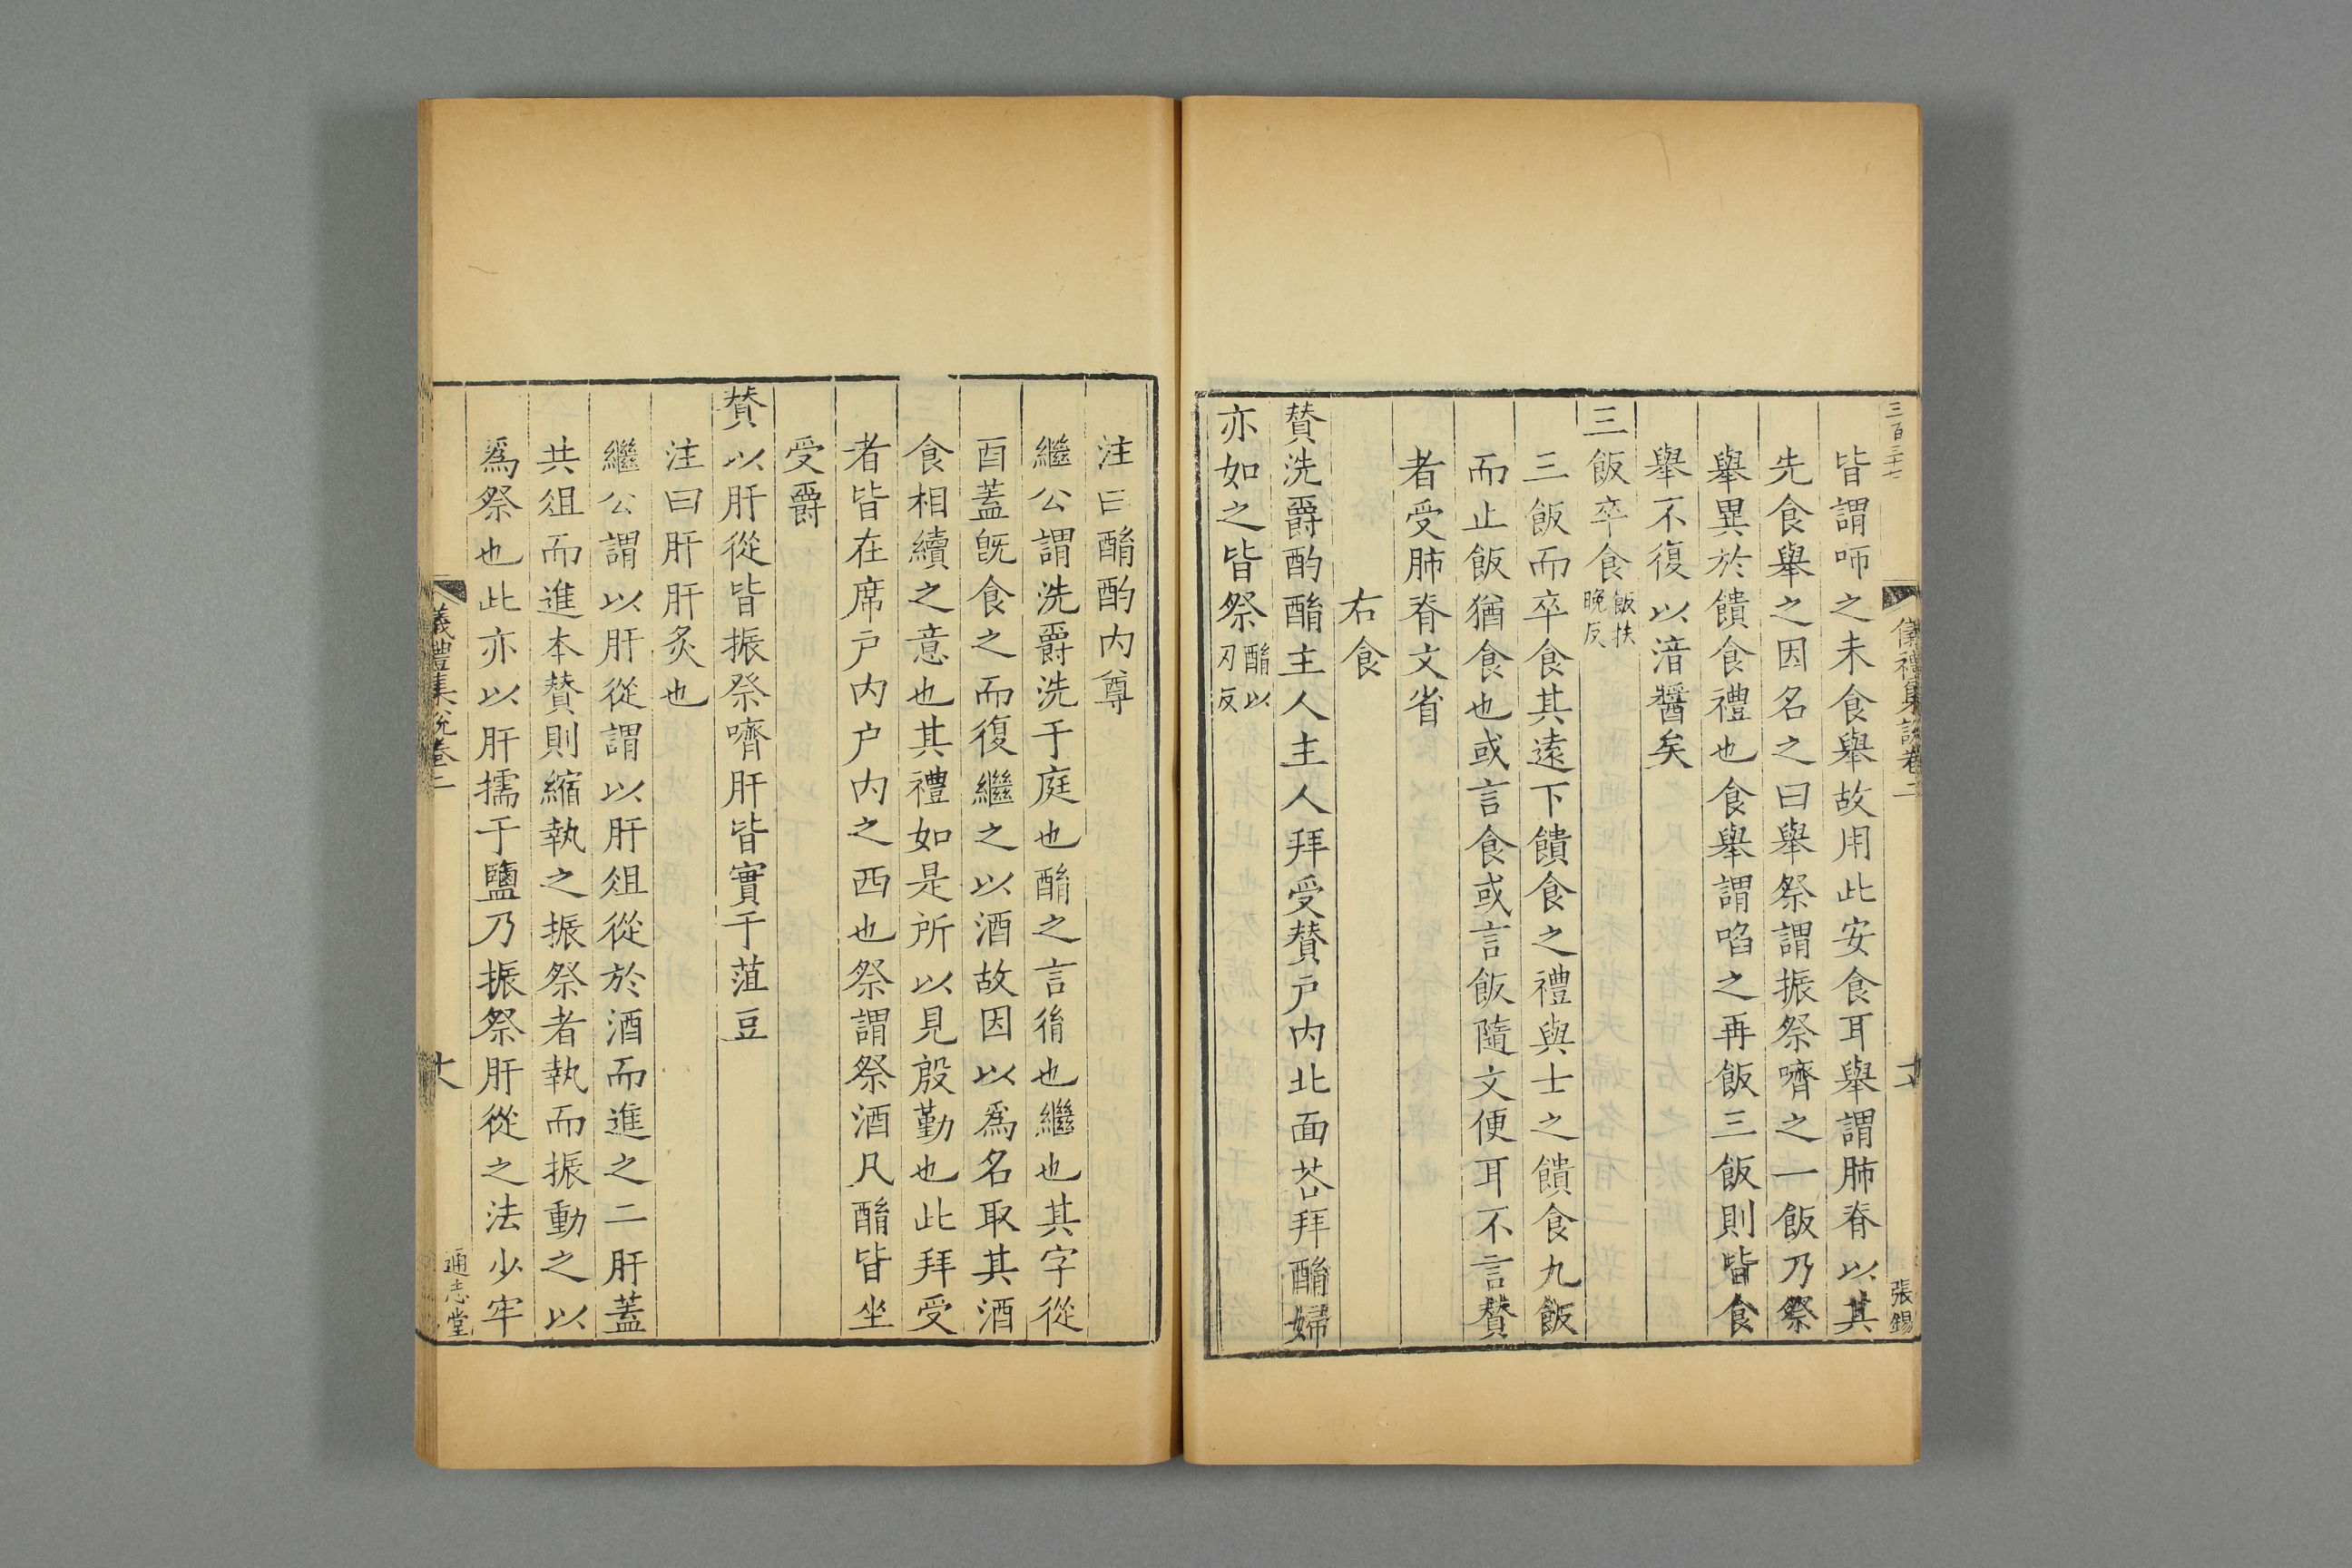 三百三十七
儀禮集說卷二
張錫
皆謂咂之未食舉故用此安食耳舉謂肺脊以其
先食舉之因名之曰舉祭謂振祭嚌之一飯乃祭
舉異於饋食禮也食舉謂啗之再飯三飯則皆食
舉不復以湆醬矣
三飯卒食飯扶晚反
三飯而卒食其遠下饋食之禮與士之饋食九飯
而止飯猶食也或言食或言飯隨文便耳不言贊
者受肺脊文省
右食
贊洗爵酌酳主人主人拜受贊戶内北面荅拜酳婦
亦如之皆祭酳以刃反
注曰酳酌内尊
繼公謂洗爵洗于庭也酳之言胤也繼也其字從
酉蓋旣食之而復繼之以酒故因以爲名取其酒
食相續之意也其禮如是所以見殷勤也此拜受
者皆在席戶内户内之西也祭謂祭酒凡酳皆坐
受爵
贊以肝從皆振祭嚌肝皆實于菹豆
注曰肝肝炙也
繼公謂以肝從謂以肝俎從於酒而進之二肝蓋
共俎而進本贊則縮執之振祭者執而振動之以
爲祭也此亦以肝擩于鹽乃振祭肝從之法少牢
儀禮集說卷二
通志堂